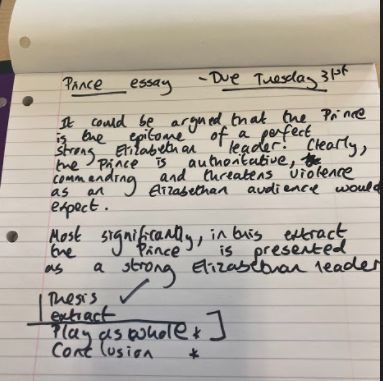 Prince essay - Due Tuesday 31st
It could be argued that the Prince
is the epitome of a perfect
strong Elizabethan leader. Clearly,
the Prince is authoritative,
commanding and threatens violence
as an Elizabethan audience would
expect.
Most significantly, in this extract
the Prince is presented
as a strong Elizabethan leader
Thesis
extract ✓
Play as whole *
Conclusion *